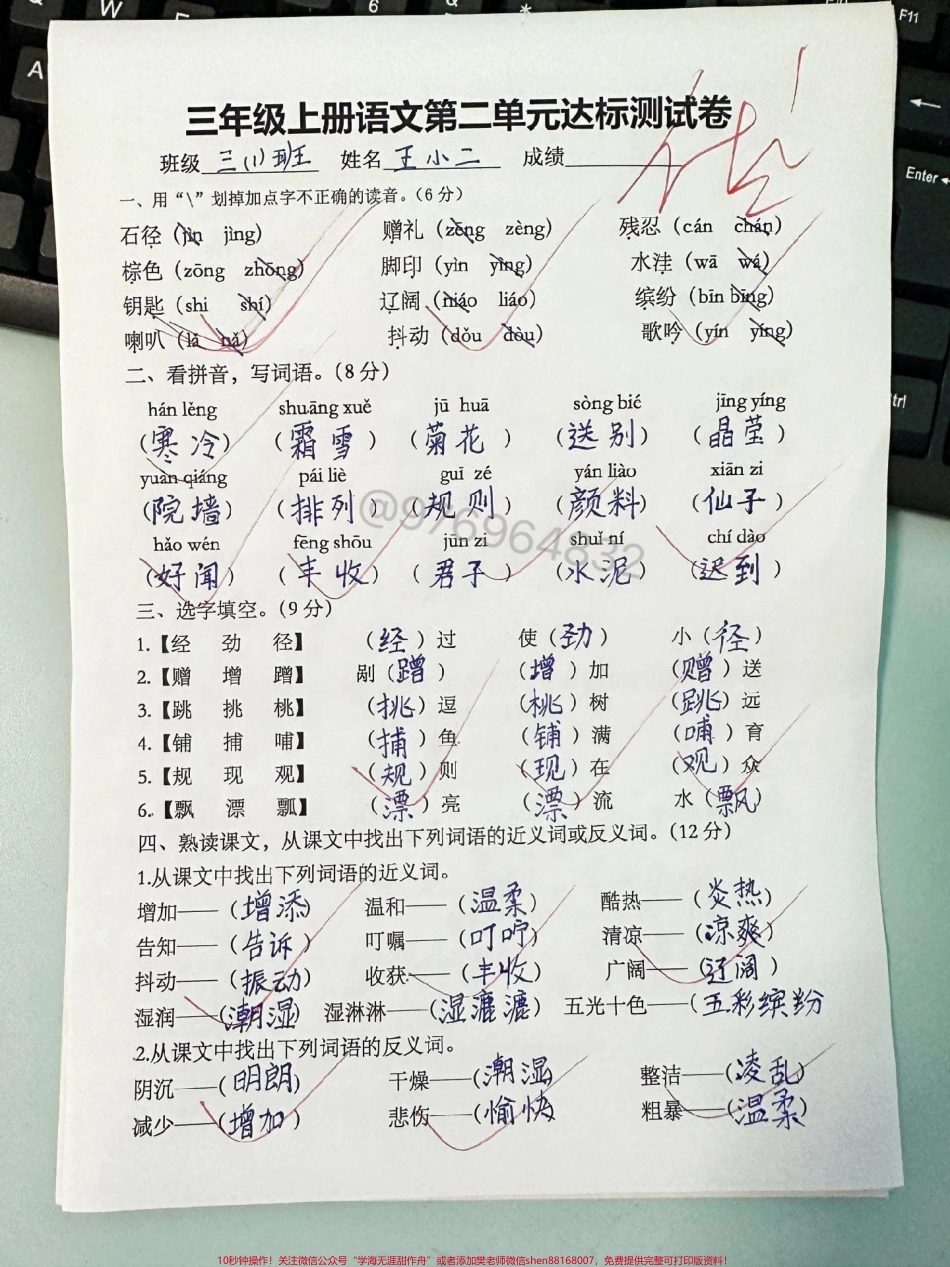 三年级上册语文第二单元达标测试卷
班级 三(1)班 姓名 王小二 成绩 优
一、用“\”划掉加点字不正确的读音。(6分)
石径（jìn jìng) 赠礼（zēng zèng) 残忍（cán chán)
棕色（zōng zhōng) 脚印（yìn yìng) 水洼（wā wá)
钥匙（shi shí) 辽阔（niáo liáo) 缤纷（bīn bīng)
喇叭（lǎ nǎ) 抖动（dǒu dòu) 歌吟（yín yíng)
二、看拼音，写词语。(8分)
hán lěng shuāng xuě jū huā sòng bié jīng yíng
(寒冷) (霜雪) (菊花) (送别) (晶莹)
yuàn qiáng pái liè guī zé yán liào xiān zi
(院墙) (排列) (规则) (颜料) (仙子)
hǎo wén fēng shōu jūn zi shuǐ ní chí dào
(好闻) (丰收) (君子) (水泥) (迟到)
三、选字填空。(9分)
1.【经 劲 径】 (经)过 使(劲) 小(径)
2.【赠 增 蹭】 剐(蹭) (增)加 (赠)送
3.【跳 挑 桃】 (挑)逗 (桃)树 (跳)远
4.【铺 捕 哺】 (捕)鱼 (铺)满 (哺)育
5.【规 现 观】 (规)则 (现)在 (观)众
6.【飘 漂 瓢】 (漂)亮 (漂)流 水(飘)
四、熟读课文，从课文中找出下列词语的近义词或反义词。(12分)
1.从课文中找出下列词语的近义词。
增加——(增添) 温和——(温柔) 酷热——(炎热)
告知——(告诉) 叮嘱——(叮咛) 清凉——(凉爽)
抖动——(振动) 收获——(丰收) 广阔——(辽阔)
湿润——(潮湿) 湿淋淋——(湿漉漉) 五光十色——(五彩缤纷
2.从课文中找出下列词语的反义词。
阴沉——(明朗) 干燥——(潮湿) 整洁——(凌乱)
减少——(增加) 悲伤——(愉快) 粗暴——(温柔)
@976964832
10秒钟操作！关注微信公众号“学海无涯甜作舟”或者添加樊老师微信shen88168007，免费提供完整可打印版资料！